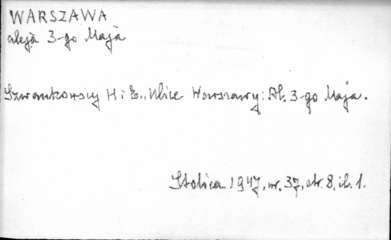 WARSZAWA
aleja 3-go Maja
Szwankowscy H i E., Ulice Warszawy: Al. 3-go Maja.
Stolica 1947, nr. 37, str. 8, il. 1.